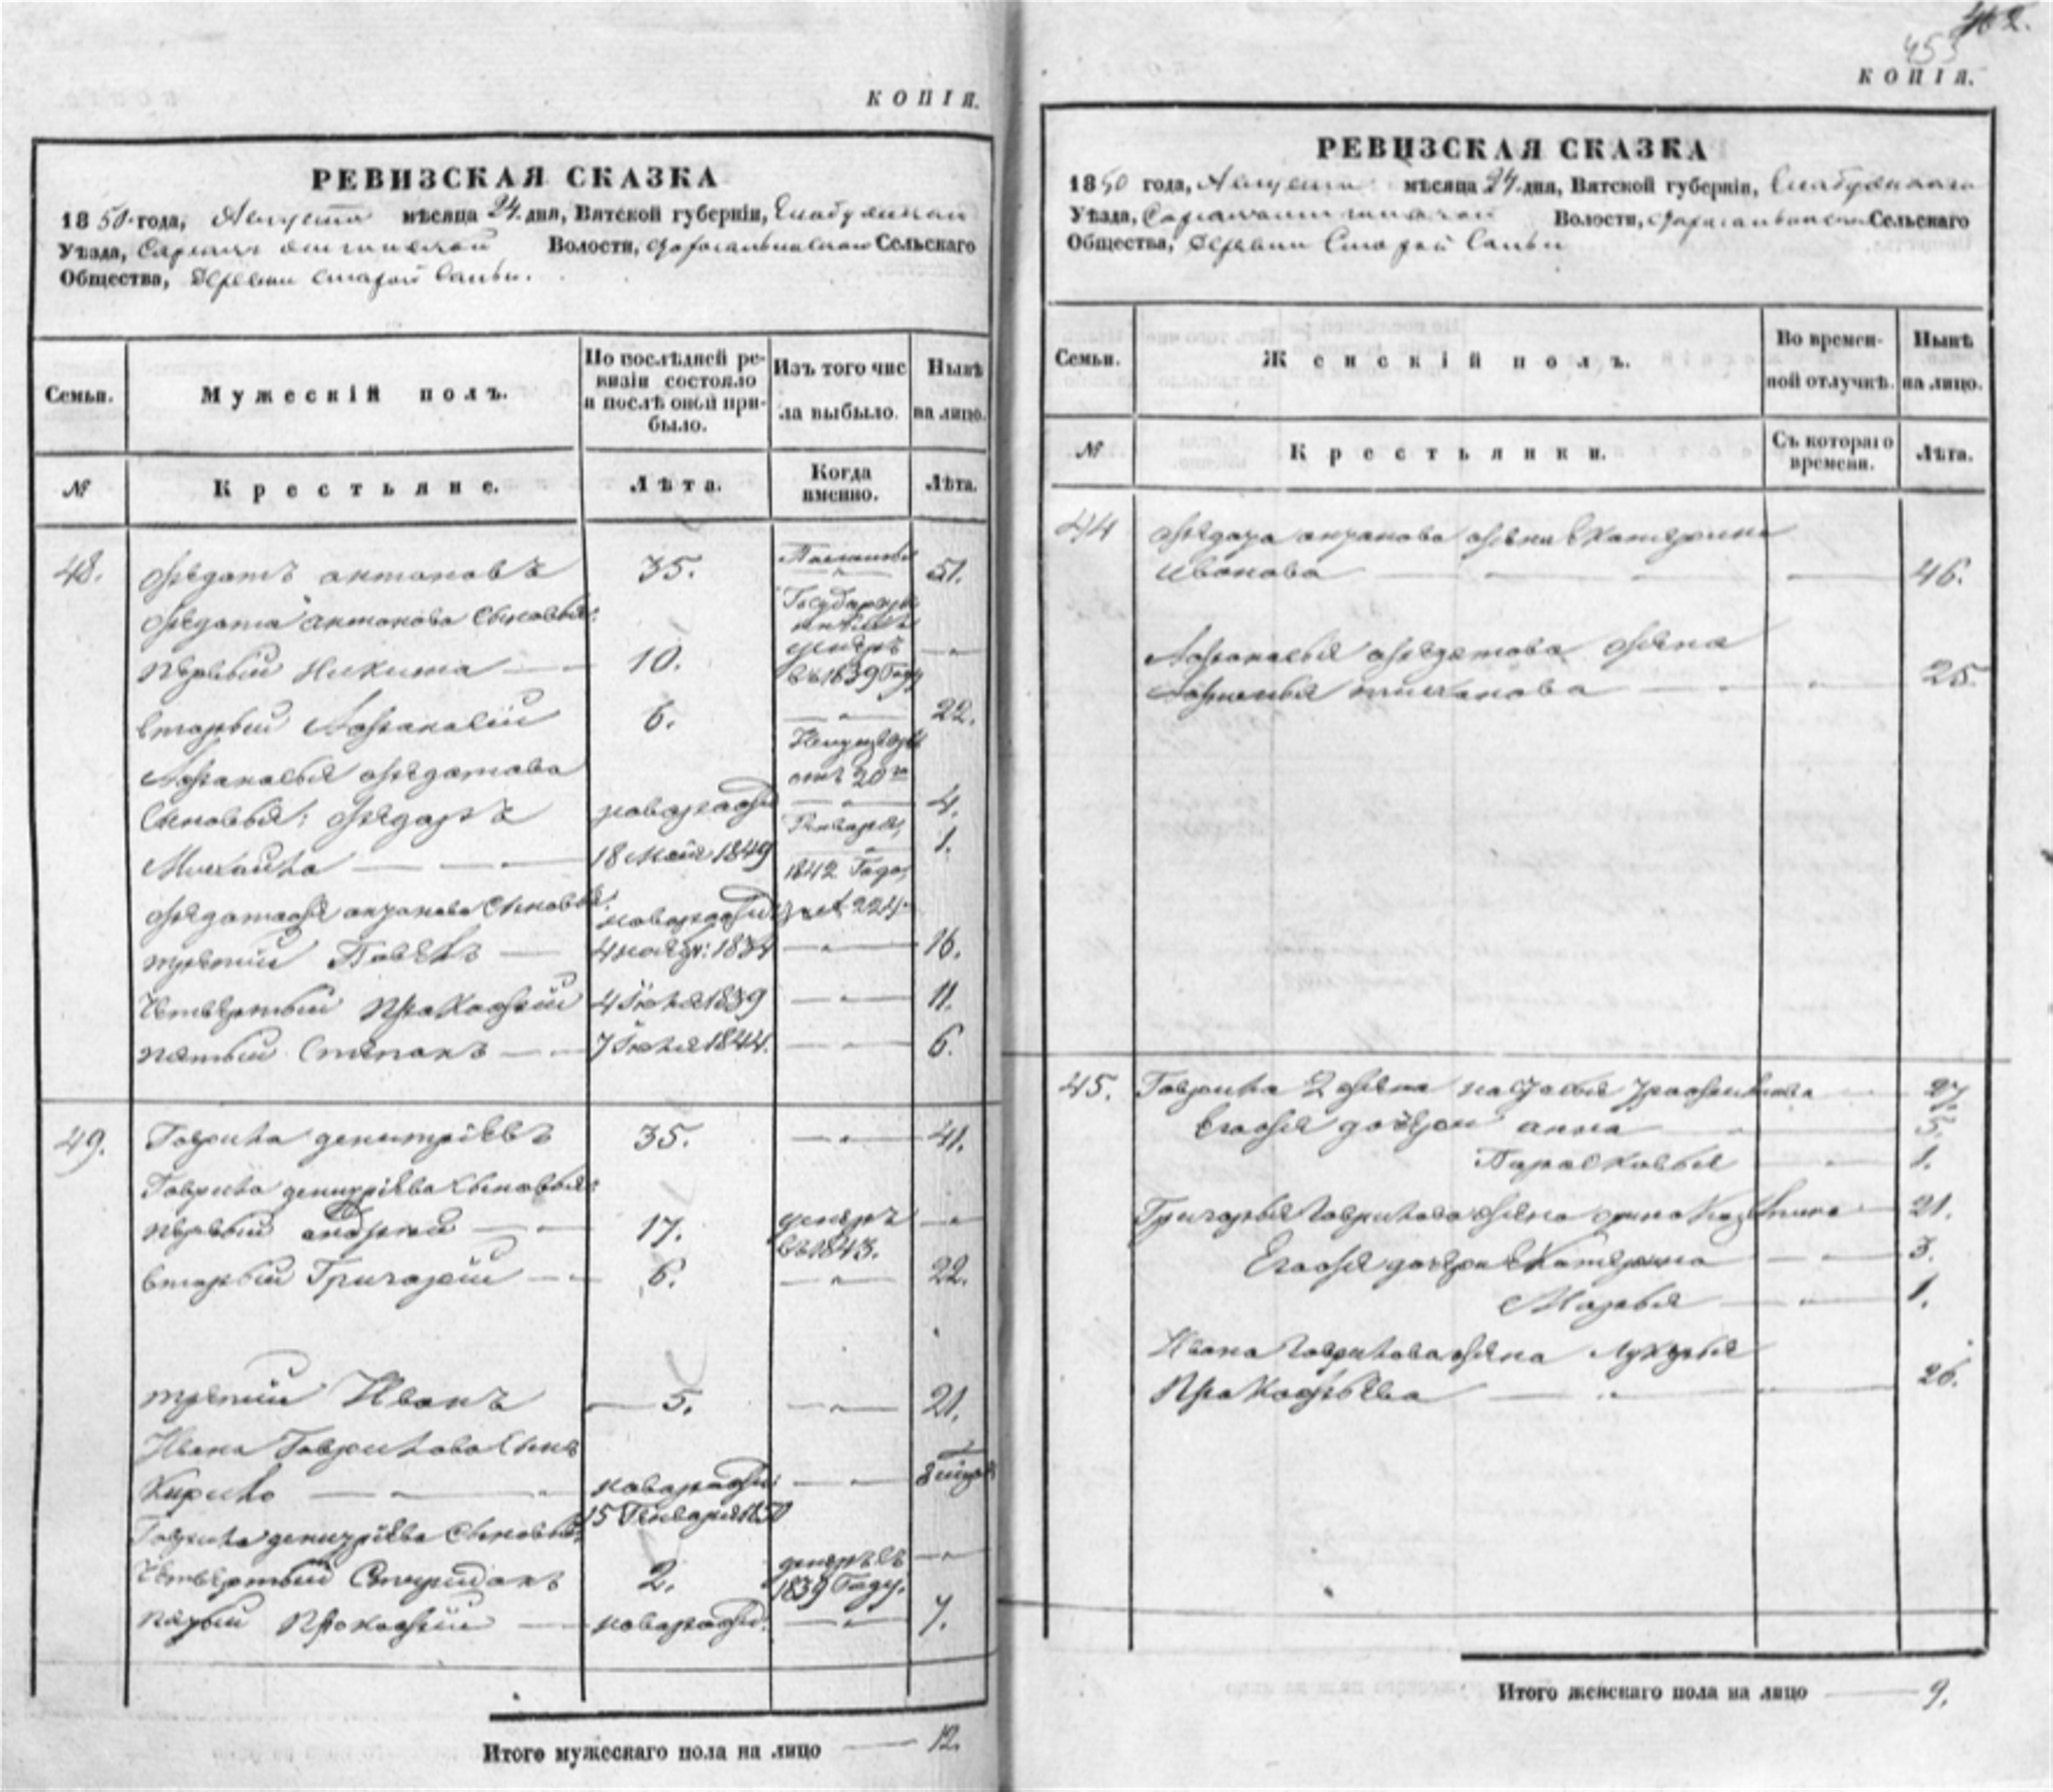 КОПІЯ.
РЕВИЗСКАЯ СКАЗКА
1850 года, Августа мѣсяца 24 дня, Вятской губерніи, Елабужскаго
Уѣзда, Волости, Сельскаго
Общества, Деревни Старой Сальи.
Семьи.
Мужескій полъ.
По послѣдней ре-
визіи состояло
и послѣ оной при-
было.
Изъ того чис
ла выбыло.
Нынѣ
на лицо.
№
Крестьяне.
Лѣта.
Когда
именно.
Лѣта.
48. Ѳедотъ Антоновъ 35. 51.
Ѳедота Антонова сыновья:
первый Никита 10. умеръ
въ 1839 Году
вторый Афанасій 6. 22.
Афанасья Ѳедотова
отъ 20го
сыновья: Ѳедоръ 4.
Генваря
Михаила 18 Мая 1849 1.
1842 Года
Сыновья:
третій Павелъ 4 ноябр: 1834 16.
четвертый Прокофій 4 Іюля 1839 11.
пятый Степанъ 7 Іюля 1844. 6.
49. Гаврила Демитріевъ 35. 41.
Гаврила Демитріева сыновья:
первый Андрей 17. умеръ
въ 1843.
вторый Григорій 6. 22.
третій Иванъ 5. 21.
Ивана Гаврилова сынъ
Кирило новорожд:
15 Генваря 1850
Гаврила Демитріева сыновья:
четвертый Спиридонъ 2. умеръ въ
1839 Году.
пятый Прокофій новорожд. 7.
Итого мужескаго пола на лицо 12.
462.
453
КОПІЯ.
РЕВИЗСКАЯ СКАЗКА
1850 года, Августа мѣсяца 24 дня, Вятской губерніи, Елабужскаго
Уѣзда, Волости, Сельскаго
Общества, Деревни Старой Сальи
Семьи.
Женскій полъ.
Во времен-
ной отлучкѣ.
Нынѣ
на лицо.
№
Крестьянки.
Съ котораго
времени.
Лѣта.
44 жена Екатерина
Иванова 46.
Афанасья Ѳедотова жена
25.
45. Гаврила 2 жена Настасья 27.
Егоже дочери Анна 5.
Парасковья 1.
Григорья Гаврилова жена 21.
Егоже дочери Екатерина 3.
Марья 1.
Ивана Гаврилова жена Лукерья
Прокофьева 26.
Итого женскаго пола на лицо 9.